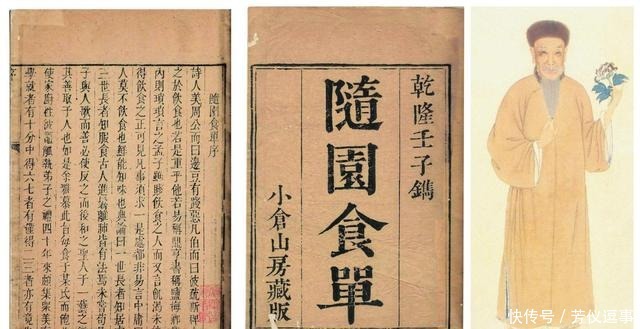 隨園食單序
詩人美周公而曰籩豆有踐惡凡伯而曰彼疏斯稗
之於飲食也若是重乎他若易稱鼎烹書稱鹽梅
內則瑣瑣言之孟子雖賤飲食之人而又言飢渴未
得飲食之正可見凡事須求一是處都非易言中
人莫不飲食也鮮能知味也典論曰一世長者知居
三世長者知服食古人進鬐離肺皆有法焉未嘗苟
子與人歌而善必使反之而後和之聖人于一藝之
其善取于人也如是余雅慕此旨每食于某氏而飽
使家廚往彼灶觚執弟子之禮四十年來頗集衆美
學就者有十分中得六七者有僅得二三者亦有竟
乾隆壬子鐫
隨園食單
小倉山房藏版
快传号 / 芳仪逗事